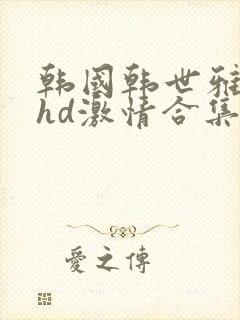 韩國韩世雅
hd激情合集
愛之傳